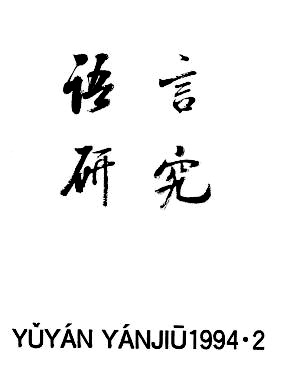 语言
研究
YǓYÁN YÁNJIŪ1994·2